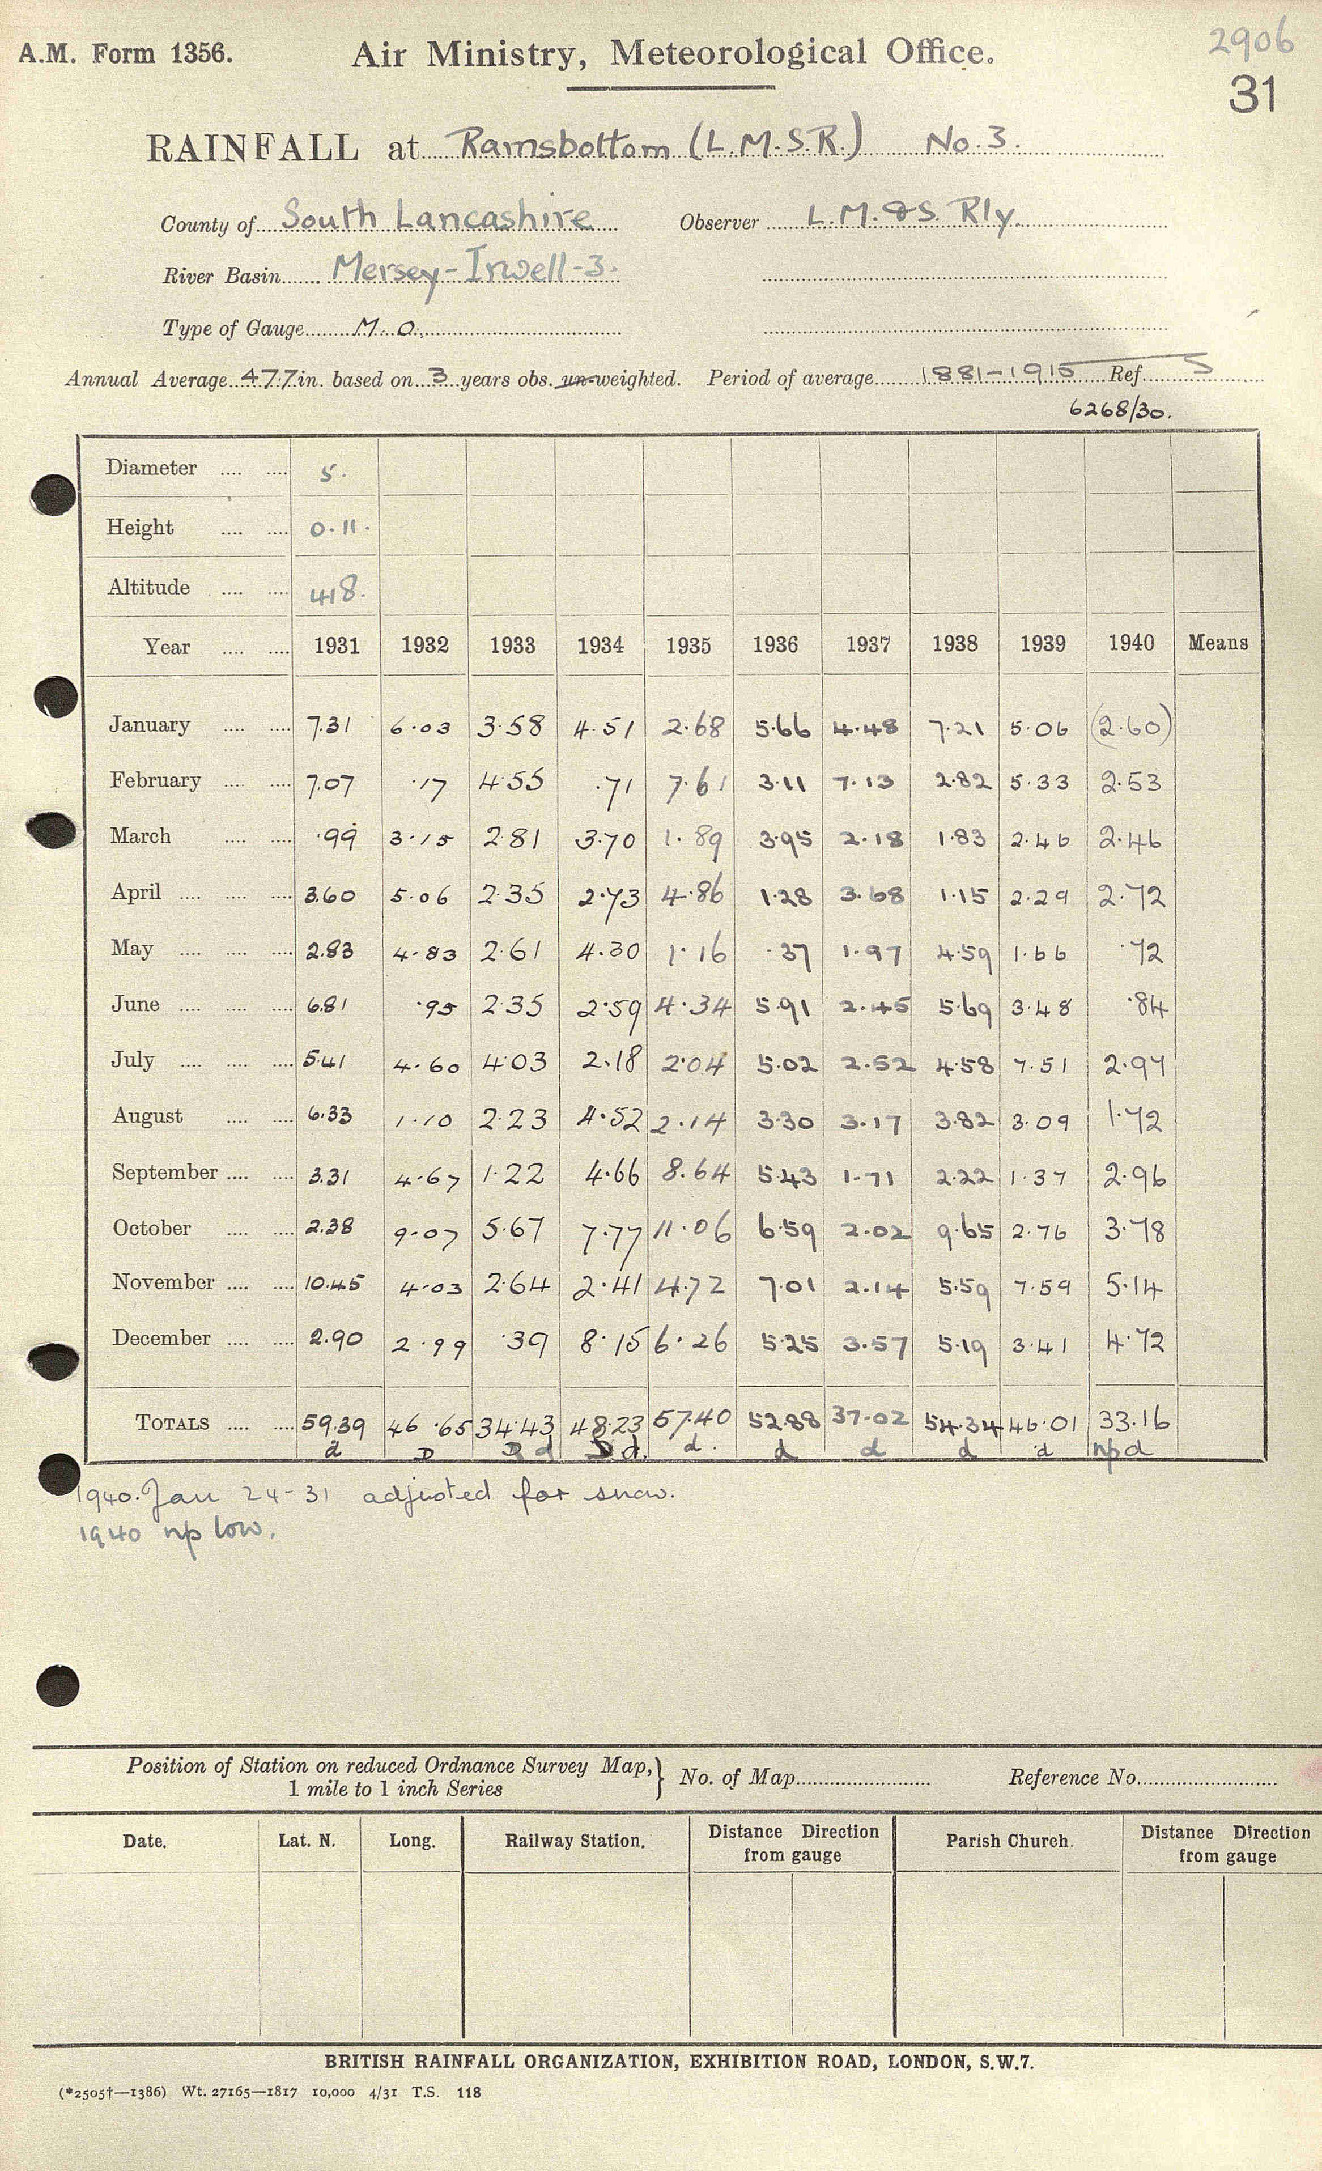 A.M. Form 1356. Air Ministry, Meteorological Office. 2906
31
RAINFALL at Ramsbottom (L.M.S.R.) No. 3.
County of South Lancashire Observer L.M. & S. Rly.
River Basin Mersey-Irwell-3.
Type of Gauge M.O.
Annual Average 47.7 in. based on 3 years obs. un-weighted. Period of average 1881-1915 Ref. S
6268/30.
Diameter 5.
Height 0.11.
Altitude 418.
Year 1931 1932 1933 1934 1935 1936 1937 1938 1939 1940 Means
January 7.31 6.03 3.58 4.51 2.68 5.66 4.48 7.21 5.06 (2.60)
February 7.07 .17 4.55 .71 7.61 3.11 7.13 2.82 5.33 2.53
March .99 3.15 2.81 3.70 1.89 3.95 2.18 1.83 2.46 2.46
April 3.60 5.06 2.35 2.73 4.86 1.28 3.68 1.15 2.29 2.72
May 2.83 4.83 2.61 4.30 1.16 .37 1.97 4.59 1.66 .72
June 6.81 .95 2.35 2.59 4.34 5.91 2.45 5.69 3.48 .84
July 5.41 4.60 4.03 2.18 2.04 5.02 2.52 4.58 7.51 2.97
August 6.33 1.10 2.23 4.52 2.14 3.30 3.17 3.82 3.09 1.72
September 3.31 4.67 1.22 4.66 8.64 5.43 1.71 2.22 1.37 2.96
October 2.38 9.07 5.67 7.77 11.06 6.59 2.02 9.65 2.76 3.78
November 10.45 4.03 2.64 2.41 4.72 7.01 2.14 5.59 7.59 5.14
December 2.90 2.99 .39 8.15 6.26 5.25 3.57 5.19 3.41 4.72
TOTALS 59.39 46.65 34.43 48.23 57.40 52.88 37.02 54.34 46.01 33.16
d D D d D d. d. d d d d np d
1940. Jan 24-31 adjusted for snow.
1940 np low.
Position of Station on reduced Ordnance Survey Map, } No. of Map Reference No.
1 mile to 1 inch Series
Date. Lat. N. Long. Railway Station. Distance Direction Parish Church. Distance Direction
from gauge from gauge
BRITISH RAINFALL ORGANIZATION, EXHIBITION ROAD, LONDON, S.W.7.
(*2505†—1386) Wt. 27165—1817 10,000 4/31 T.S. 118